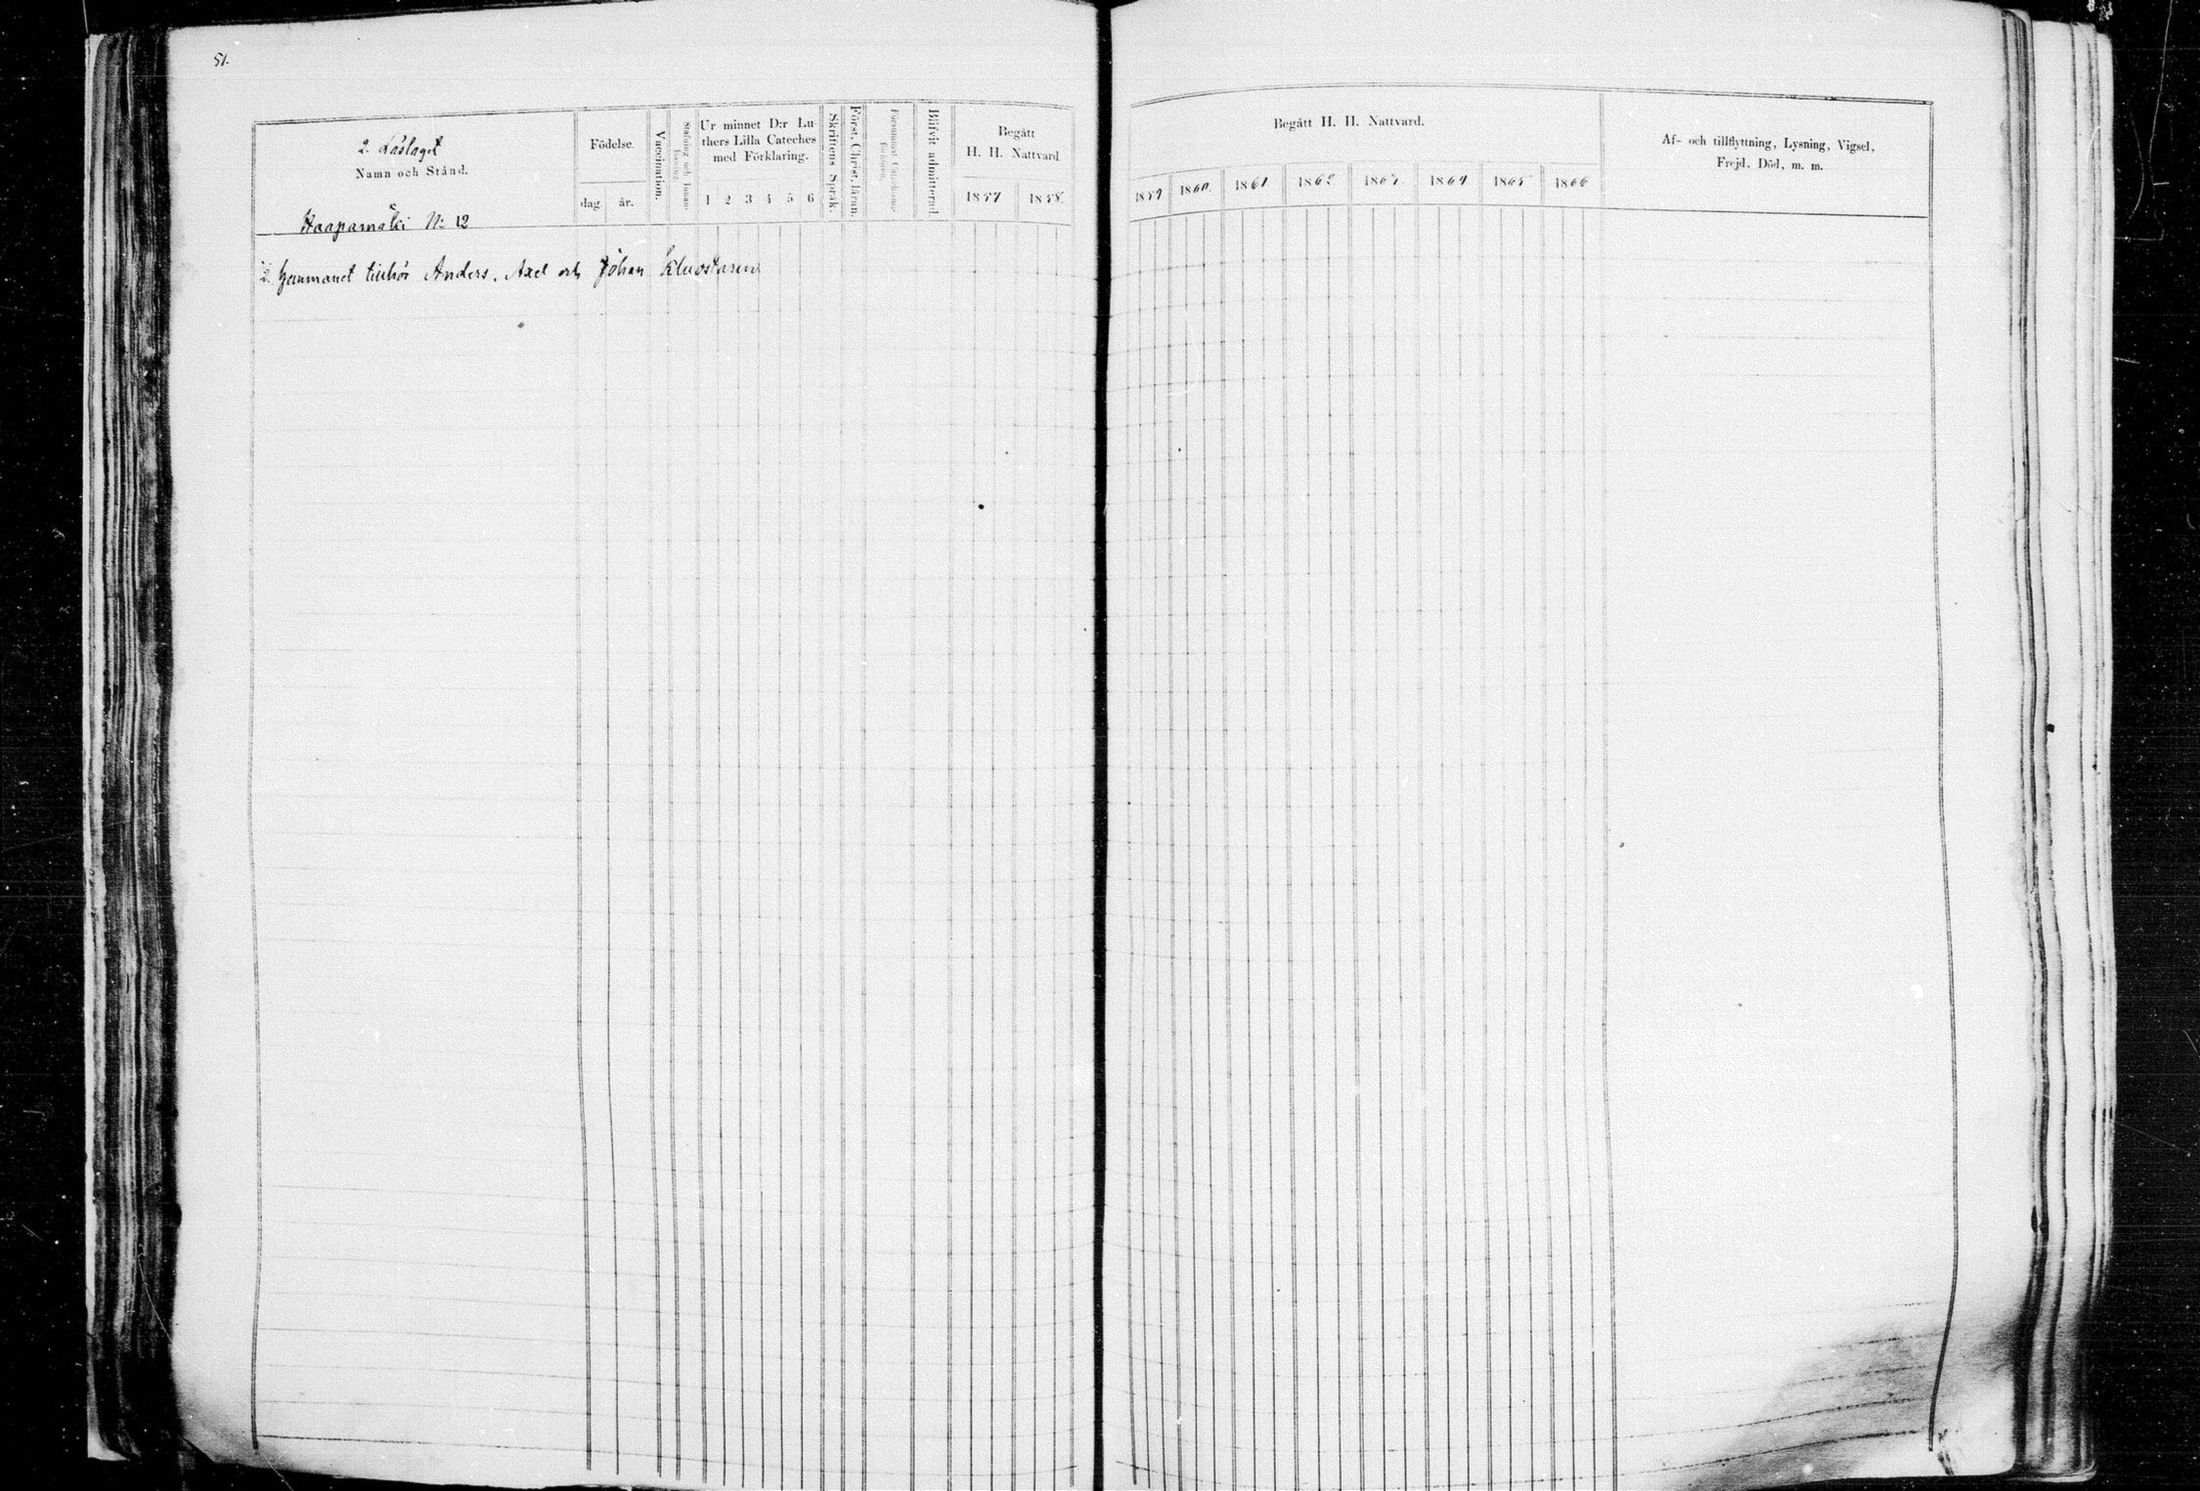 51.
2. Läslaget
Namn och Stånd.
Haapamäki N: 12
Födelse.
dag. år.
Vaccination.
Stafning och Innan-
läsning.
Ur minnet D:r Lu-
thers Lilla Cateches
med Förklaring.
1 2 3 4 5 6
Skriftens Språk.
Först. Christ. läran.
Försummat Catechism.-
förhören.
Blifvit admitterad.
Begått
H. H. Nattvard
1857 1858
½ hemmanet tillhör Anders, Axel och Johan
Begått H. H. Nattvard.
1859 1860 1861 1862 1863 1864 1865 1866
Af- och tillflyttning, Lysning, Vigsel,
Frejd. Död, m. m.